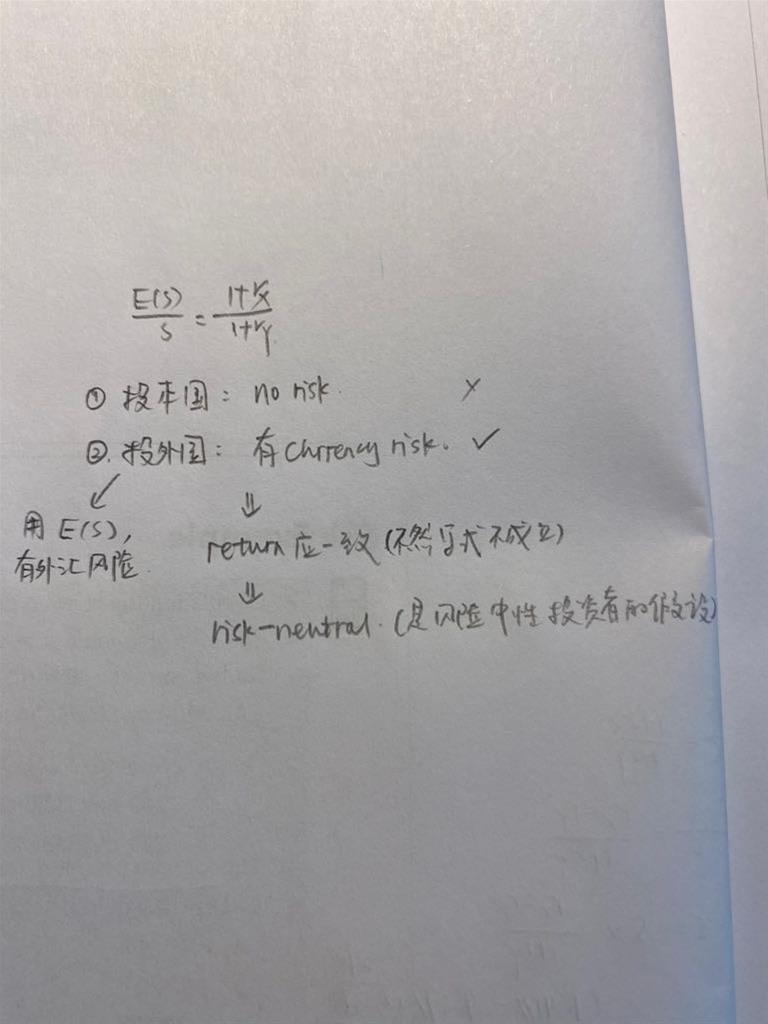 E(S)/S = 1+rx/1+ry
① 投本国: no risk. ×
②. 投外国: 有 currency risk. ✓
↙ ⇓
用 E(S), 有外汇风险.
return 应一致 (不然 公式 不成立)
⇓
risk-neutral. (是风险中性投资者的假设)